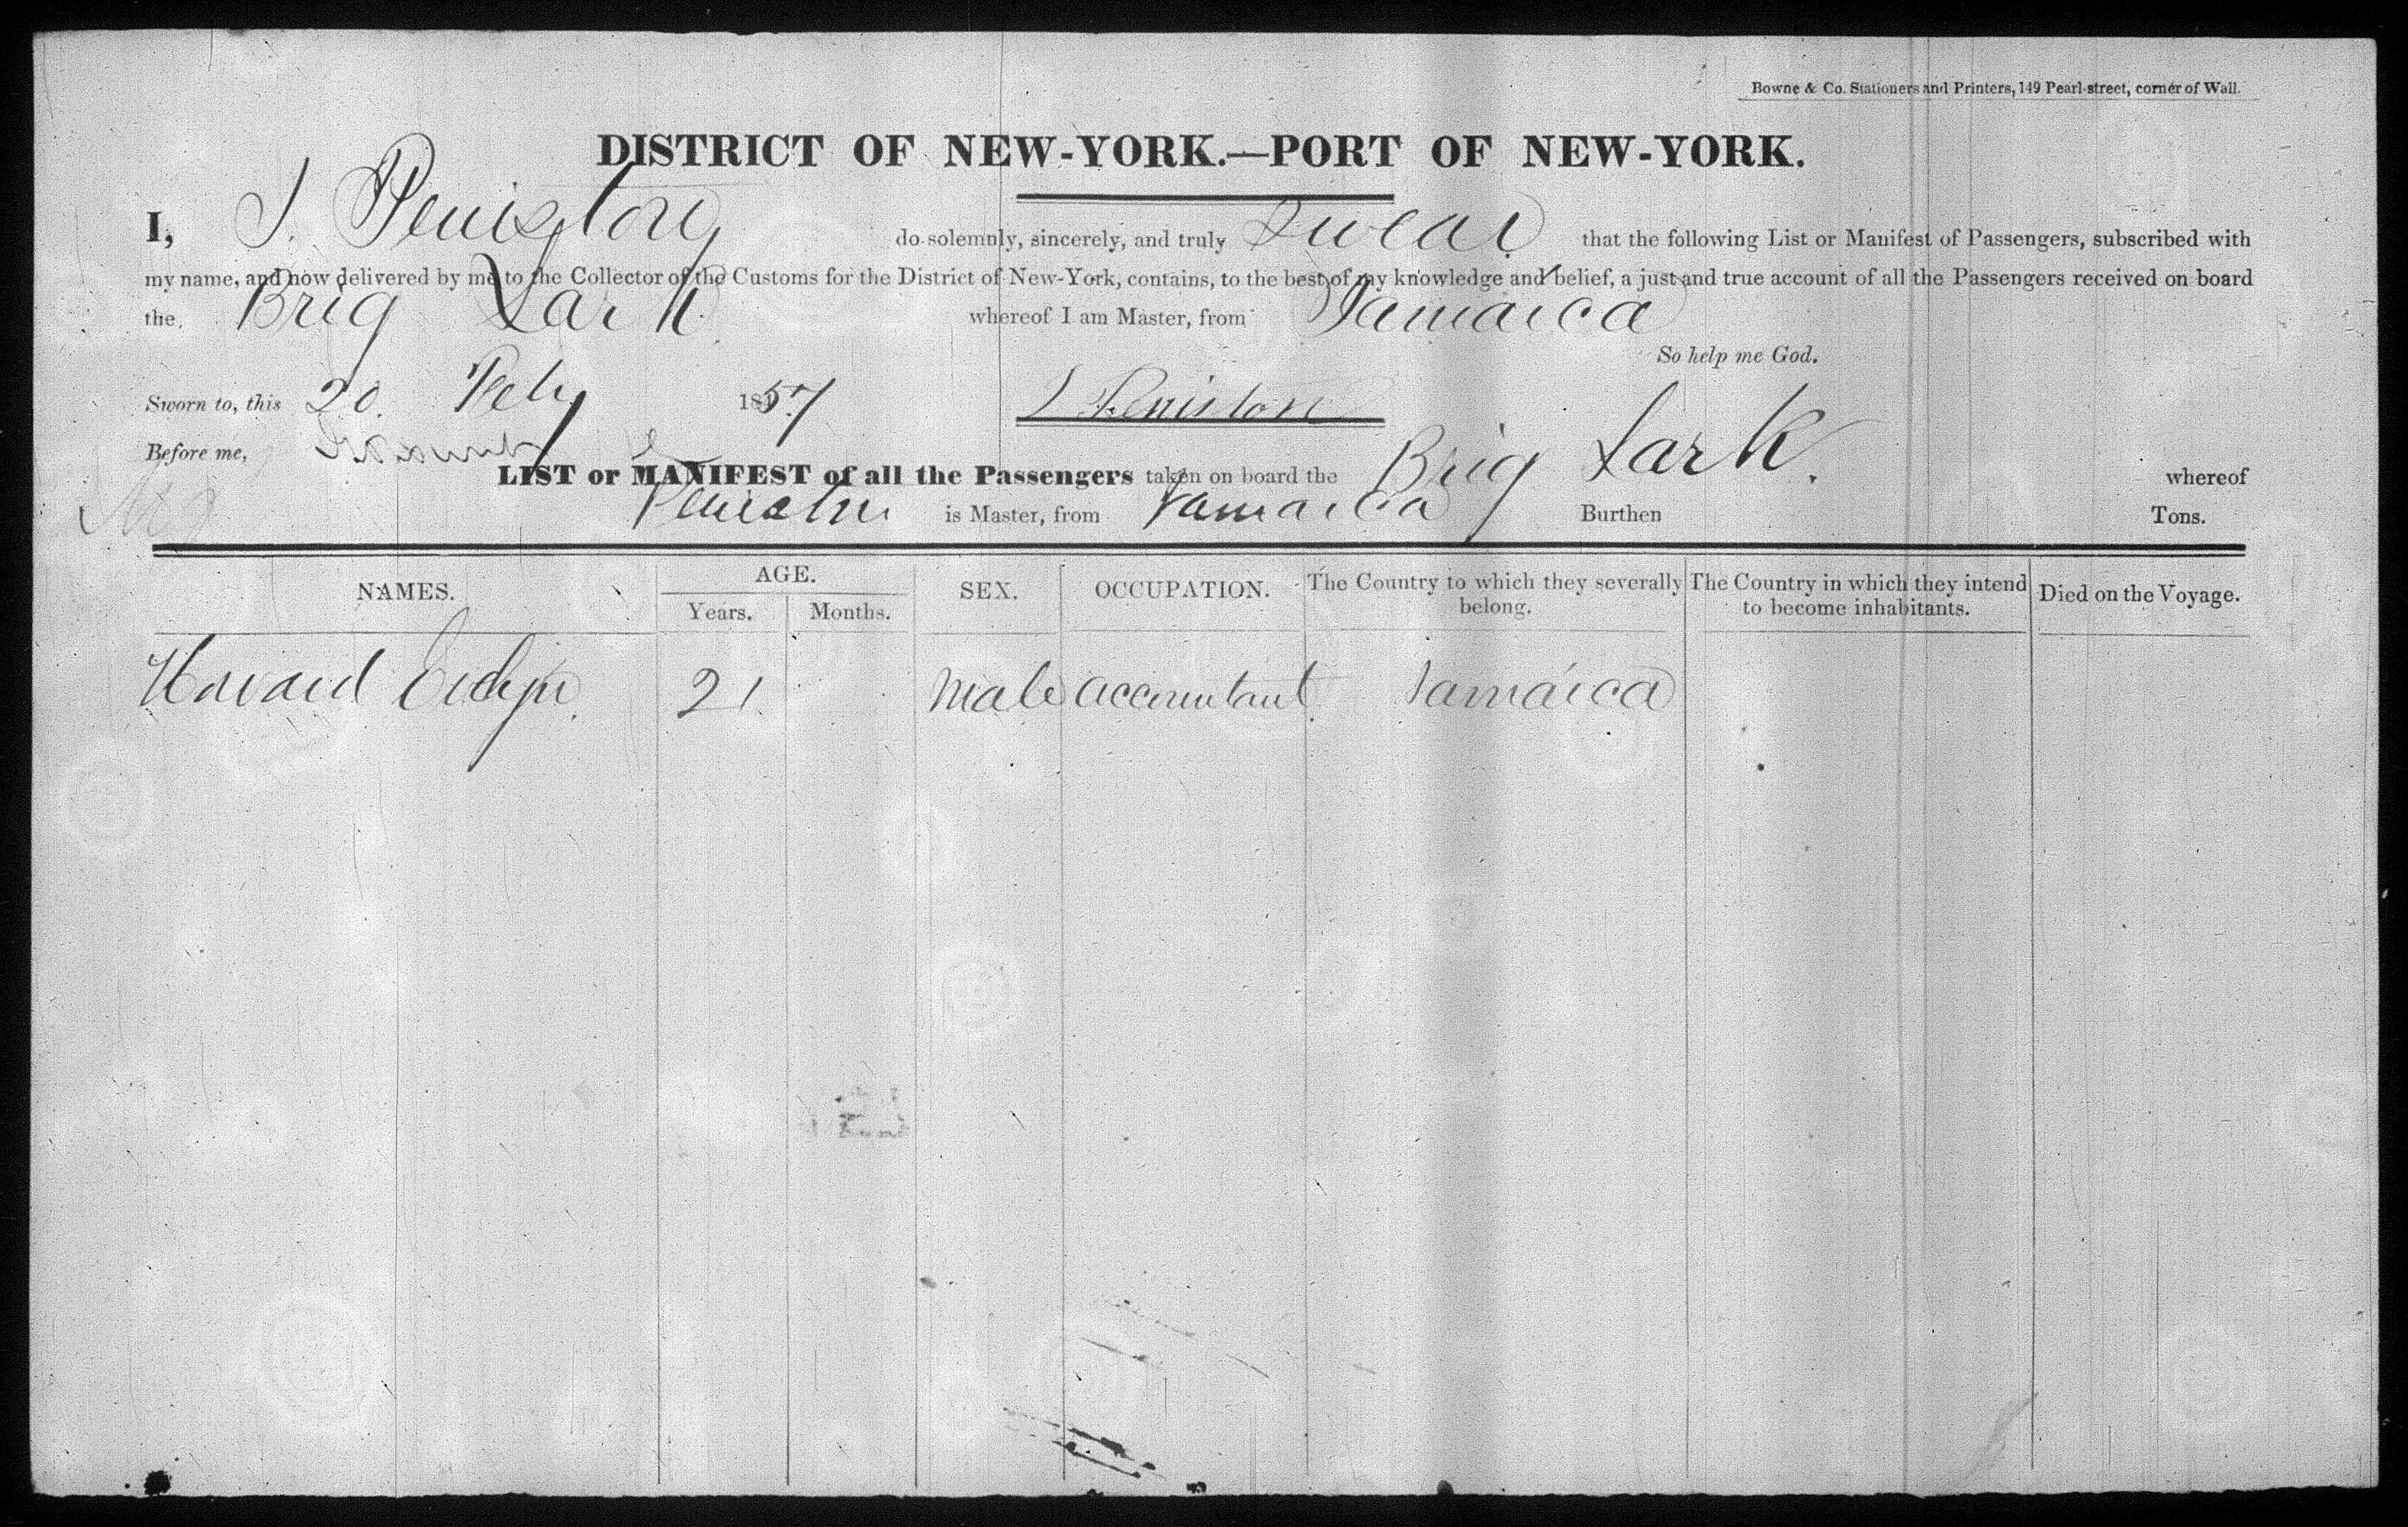 Bowne & Co. Stationers and Printers, 149 Pearl-street, corner of Wall.
DISTRICT OF NEW-YORK.—PORT OF NEW-YORK.
I, J. Peniston do solemnly, sincerely, and truly swear that the following List or Manifest of Passengers, subscribed with
my name, and now delivered by me to the Collector of the Customs for the District of New-York, contains, to the best of my knowledge and belief, a just and true account of all the Passengers received on board
the Brig Lark whereof I am Master, from Jamaica
So help me God.
Sworn to, this 20 Feby 1857 J Peniston
Before me,
LIST or MANIFEST of all the Passengers taken on board the Brig Lark. whereof
Peniston is Master, from Jamaica Burthen Tons.
NAMES. AGE. Years. Months. SEX. OCCUPATION. The Country to which they severally belong. The Country in which they intend to become inhabitants. Died on the Voyage.
21 Male accountant Jamaica